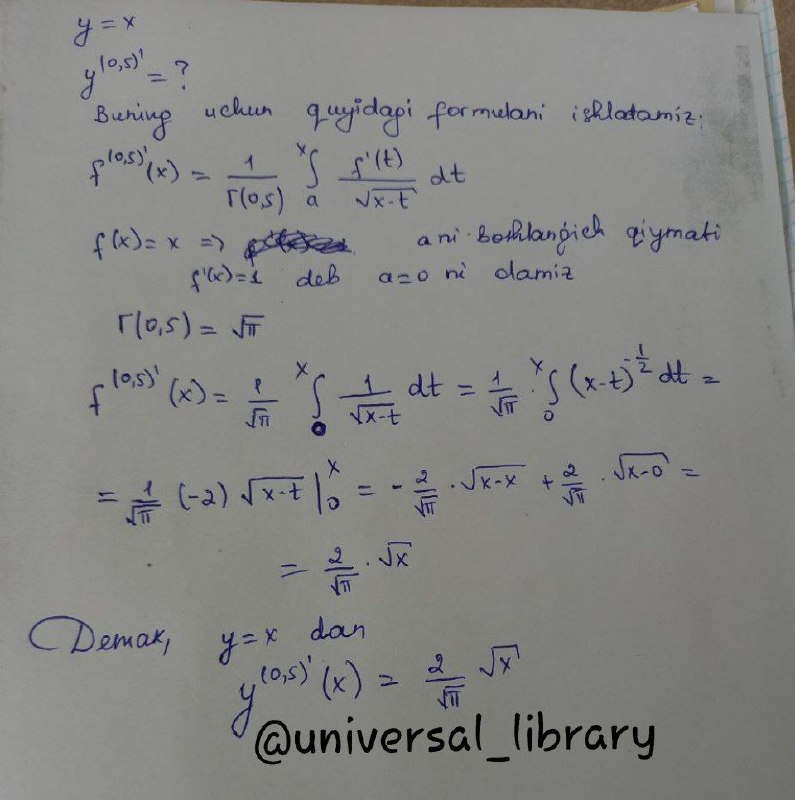 y = x
y^(0,5)' = ?
Buning uchun quyidagi formulani ishlatamiz:
f^(0,5)'(x) = 1/Γ(0,5) ∫_a^x f'(t)/√(x-t) dt
f(x) = x => a ni boshlang'ich qiymati
f'(x)=1 deb a=0 ni olamiz
Γ(0,5) = √π
f^(0,5)'(x) = 1/√π ∫_0^x 1/√(x-t) dt = 1/√π · ∫_0^x (x-t)^(-1/2) dt =
= 1/√π (-2) √(x-t) |_0^x = - 2/√π · √(x-x) + 2/√π · √(x-0) =
= 2/√π · √x
Demak, y=x dan
y^(0,5)'(x) = 2/√π √x
@universal_library